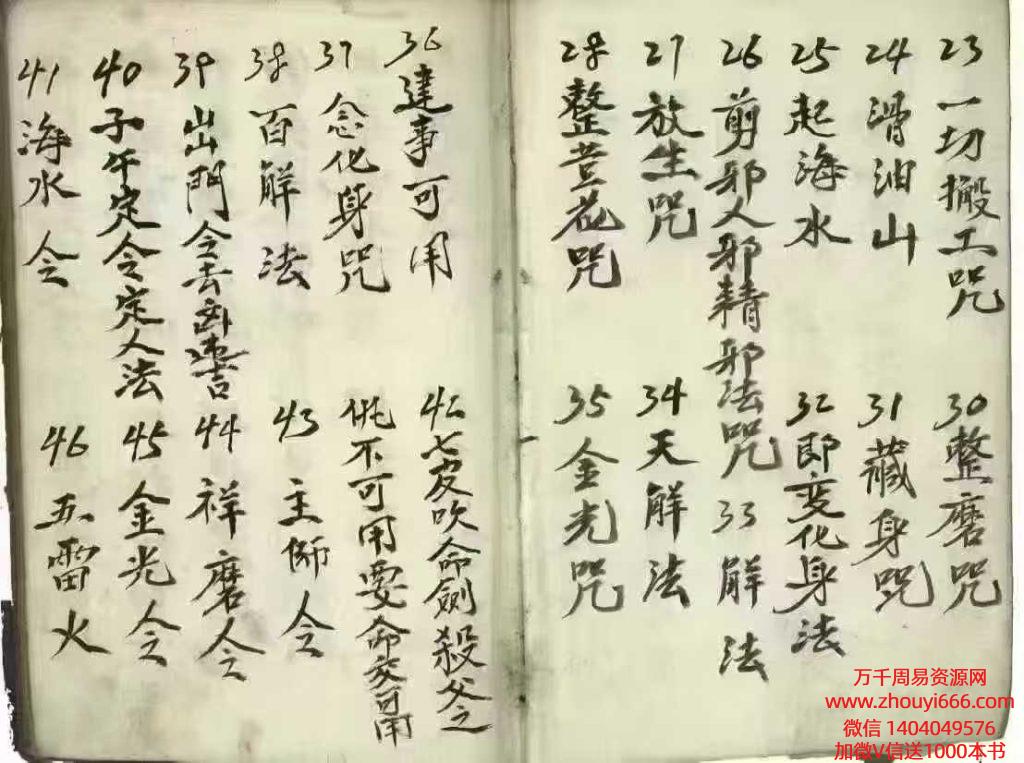 23 一切搬工咒
24 滑油山
25 起海水
26 剪邪人邪精邪法咒
27 放生咒
28 整荳花咒
30 整磨咒
31 藏身咒
32 即变化身法
33 解法
34 天解法
35 金光咒
36 達事可用
37 念化身咒
38 百解法
39 出門令去凶進吉
40 子午定令定人法
41 海水令
吹命劍殺
不可用要命交可用
43 主师令
44 祥磨令
45 金光令
46 五雷火
万千周易资源网
www.zhouyi666.com
微信 1404049576
加微V信送1000本书